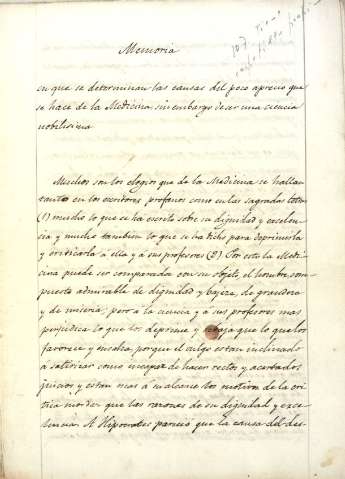 Memoria
en que se determinan las causas del poco aprecio que
se hace de la Medicina sin embargo de ser una ciencia
nobilisima
Muchos son los elogios que de la Medicina se hallan
tanto en los escritores profanos como en las sagradas letras
(1) mucho lo que se ha escrito sobre su dignidad y excelen-
cia y mucho tambien lo que se ha dicho para deprimirla
y ridicarla à ella y a sus profesores (2). Por esto la Medi-
cina puede ser comparada con su objeto, el hombre, com-
puesto admirable de dignidad y bajeza, de grandeza
y de miseria; pero a la ciencia y a sus profesores mas
perjudica lo que los deprime y ultraja que lo que los
favorece y ensalza, porque el vulgo es tan inclinado
à satirizar como incapaz de hacer rectos y acertados
juicios y estan mas à su alcance los motivos de la cri-
tica mordaz que las razones de su dignidad y exce-
lencia. A Hipocrates pareció que la causa del des-